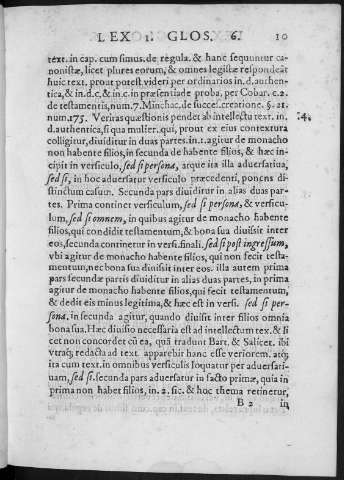 LEX 1. GLOS. 6. 10
text. in cap. cum simus. de regula. & hanc sequuntur ca-
nonistæ, licet plures eorum, & omnes legistæ respondeãt
huic text. prout potest videri per ordinarios in.d. authen-
tica, & in.d.c, & in.c. in præsentia de proba. per Cobar. c.2.
de testamentis, num.7. Minchac. de succes. creatione. §. 21.
num.175. Veritas quæstionis pendet ab intellectu text. in.
d. authentica, si qua mulier. qui, prout ex eius contextura
colligitur, diuiditur in duas partes. in.1. agitur de monacho
non habente filios, in secunda de habente filiis, & hæc in-
cipit in versiculo, sed si persona, atque ita illa aduersatiua,
sed si, in hoc aduersatur versiculo præcedenti, ponens di-
stinctum casum. Secunda pars diuiditur in alias duas par-
tes. Prima continet versiculum, sed si persona, & versicu-
lum, sed si omnem, in quibus agitur de monacho habente
filios, qui condidit testamentum, & bona sua diuisit inter
eos, secunda continetur in versi. finali. sed si post ingressum,
vbi agitur de monacho habente filios, qui non fecit testa-
mentum, nec bona sua diuisiit inter eos. illa autem prima
pars secundæ partis diuiditur in alias duas partes, in prima
agitur de monacho habente filios, qui fecit testamentum,
& dedit eis minus legitima, & hæc est in versi. sed si per-
sona. in secunda agitur, quando diuisit inter filios omnia
bona sua. Hæc diuisio necessaria est ad intellectum tex. & li
cet non concordet cũ ea, quã tradunt Bart. & Salicet. ibi
vtraq; redacta ad text. apparebit hanc esse veriorem. atq;
ita cum text. in omnibus versiculis loquatur per aduersati-
uam, sed si. secunda pars aduersatur in facto primæ, quia in
prima non habet filios, in. 2. sic. & hoc thema retinetur,
B 2 in